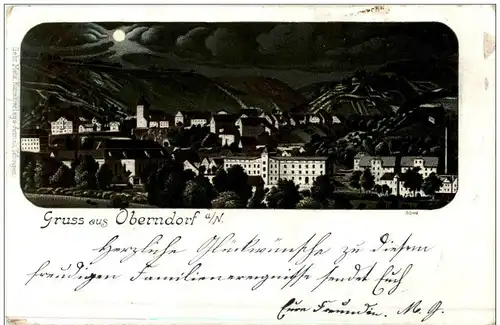 Gruss aus Oberndorf a/N.
Herzliche Glückwünsche zu diesem
freudigen Familienereignisse sendet Euch
Eure Freundin. M. G.